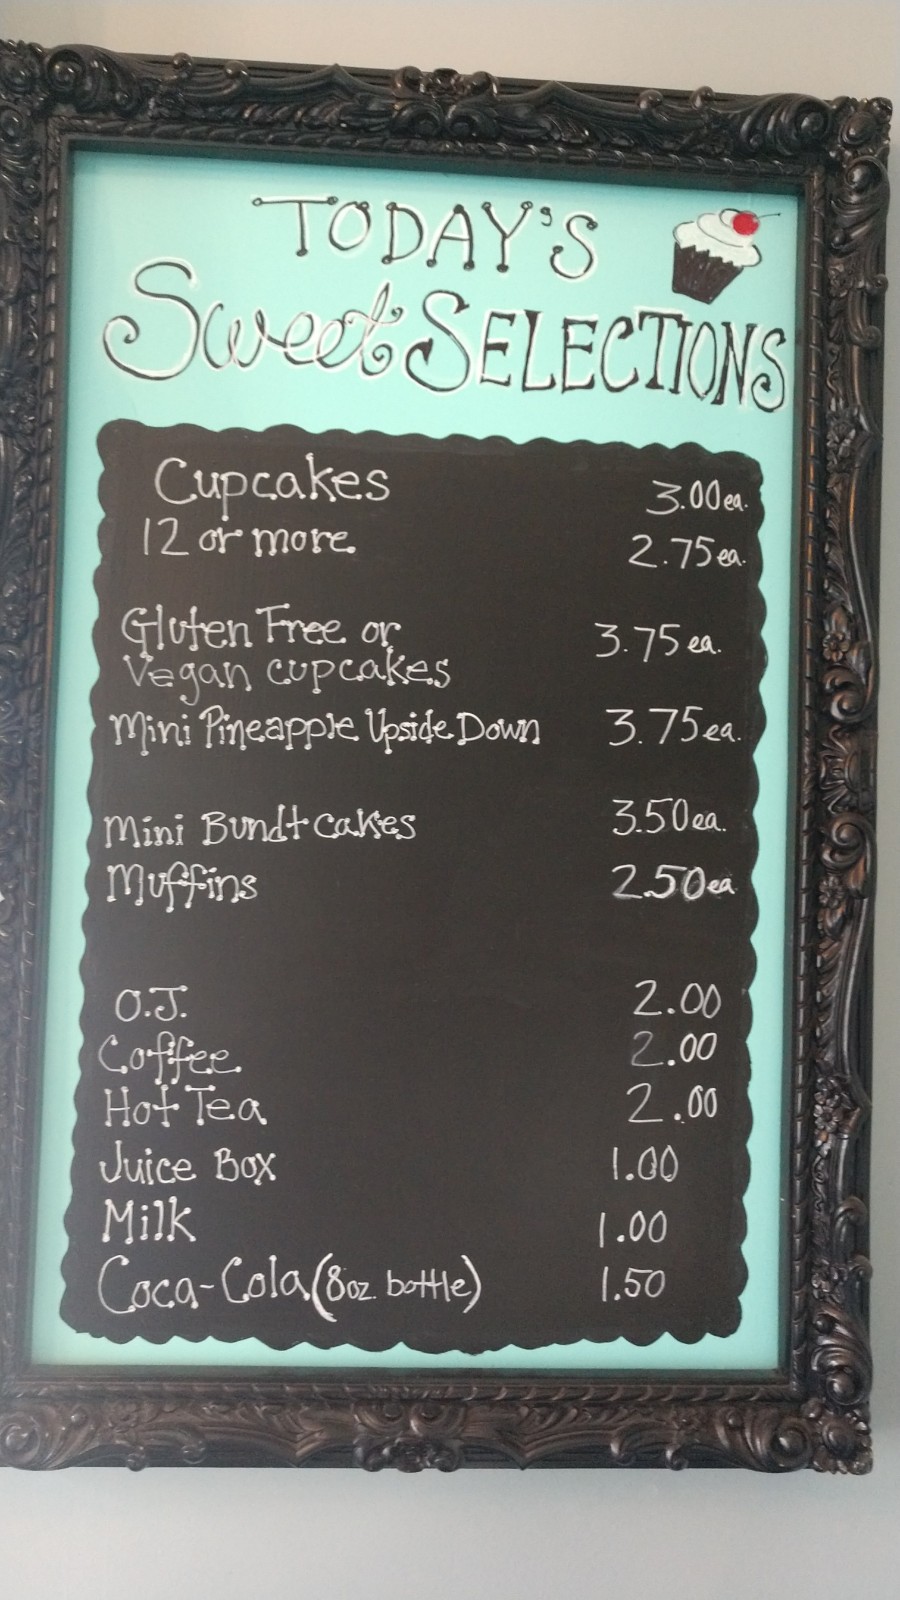 TODAY'S
Sweet SELECTIONS
Cupcakes 3.00 ea.
12 or more 2.75 ea.
Gluten Free or
Vegan cupcakes 3.75 ea.
Mini Pineapple Upside Down 3.75 ea.
Mini Bundt cakes 3.50 ea.
Muffins 2.50 ea
O.J. 2.00
Coffee 2.00
Hot Tea 2.00
Juice Box 1.00
Milk 1.00
Coca-Cola (8oz. bottle) 1.50